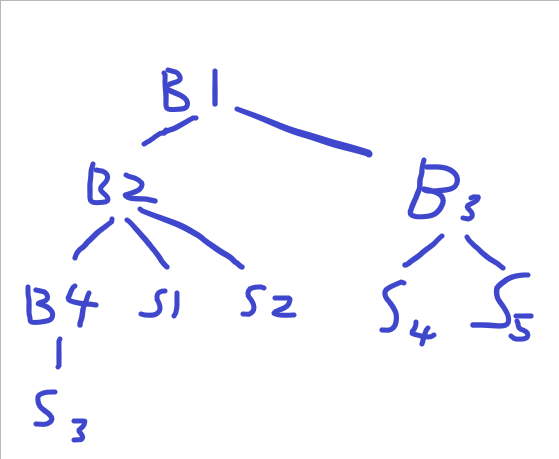 B1
B2 B3
B4 S1 S2 S4 S5
S3